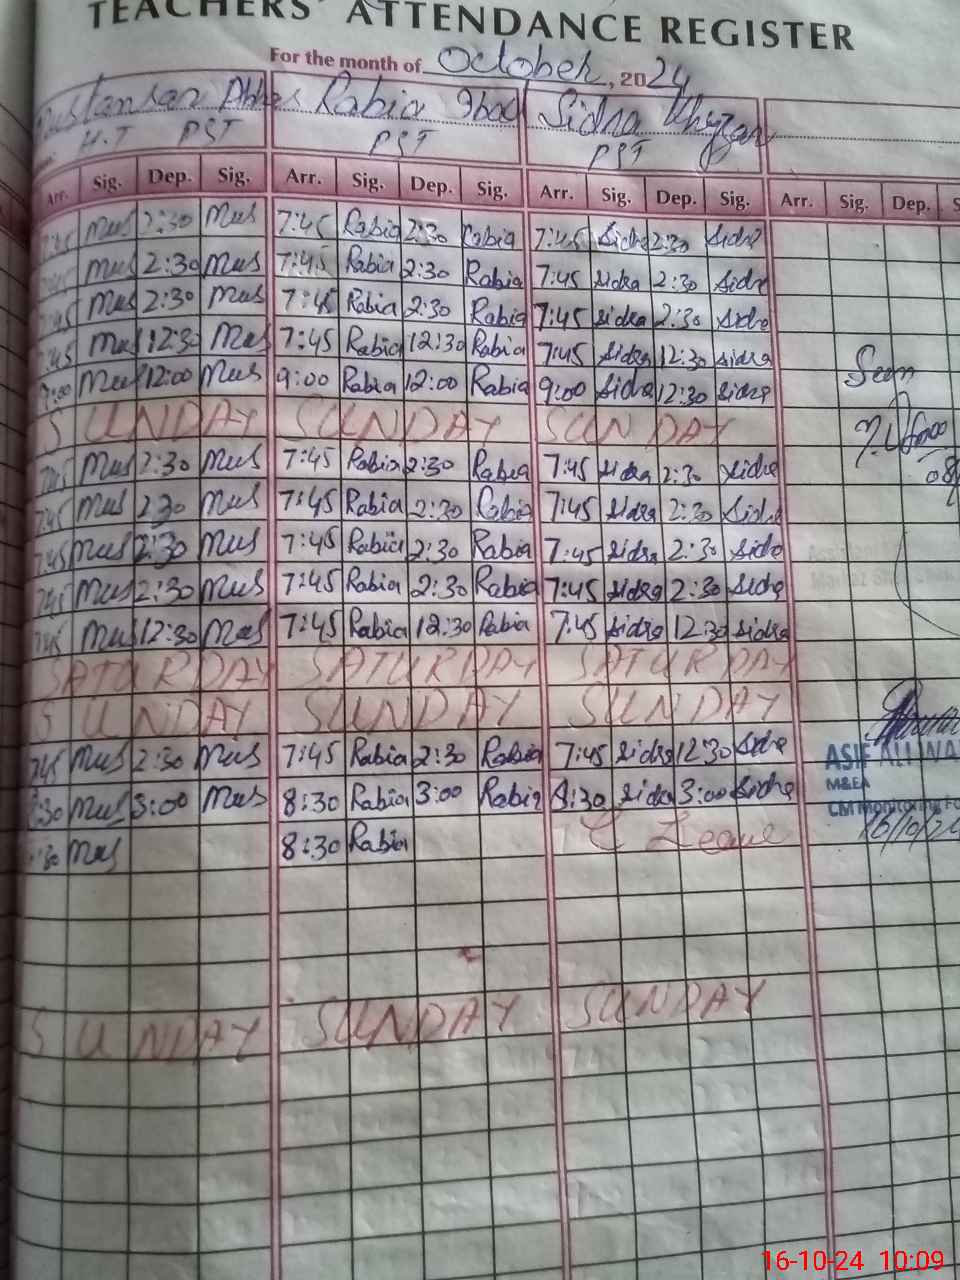 TEACHERS' ATTENDANCE REGISTER
For the month of October, 2024
Rabia Sidra
H.T PST PST PST
Arr. Sig. Dep. Sig. Arr. Sig. Dep. Sig. Arr. Sig. Dep. Sig. Arr. Sig. Dep.
Mus 2:30 Mus 7:45 Rabia 2:30 Rabia 7:45 Sidra 2:30 Sidra
Mus 2:30 Mus 7:45 Rabia 2:30 Rabia 7:45 Sidra 2:30 Sidra
Mus 2:30 Mus 7:45 Rabia 2:30 Rabia 7:45 Sidra 2:30 Sidra
7:45 Mus 12:30 Mus 7:45 Rabia 12:30 Rabia 7:45 Sidra 12:30 Sidra
9:00 Mus 12:00 Mus 9:00 Rabia 12:00 Rabia 9:00 Sidra 12:30 Sidra
Seen
SUNDAY SUNDAY SUNDAY
Mus 2:30 Mus 7:45 Rabia 2:30 Rabia 7:45 Sidra 2:30 Sidra
7:45 Mus 2:30 Mus 7:45 Rabia 2:30 Rabia 7:45 Sidra 2:30 Sidra
7:45 Mus 2:30 Mus 7:45 Rabia 2:30 Rabia 7:45 Sidra 2:30 Sidra
7:45 Mus 2:30 Mus 7:45 Rabia 2:30 Rabia 7:45 Sidra 2:30 Sidra
7:45 Mus 12:30 Mus 7:45 Rabia 12:30 Rabia 7:45 Sidra 12:30 Sidra
SATURDAY SATURDAY SATURDAY
SUNDAY SUNDAY SUNDAY
7:45 Mus 2:30 Mus 7:45 Rabia 2:30 Rabia 7:45 Sidra 12:30 Sidra
ASIF ALI
M&EA
8:30 Mus 3:00 Mus 8:30 Rabia 3:00 Rabia 8:30 Sidra 3:00 Sidra
CM Monitoring
Mus 8:30 Rabia C Leave
16/10/24
SUNDAY SUNDAY SUNDAY
16-10-24 10:09